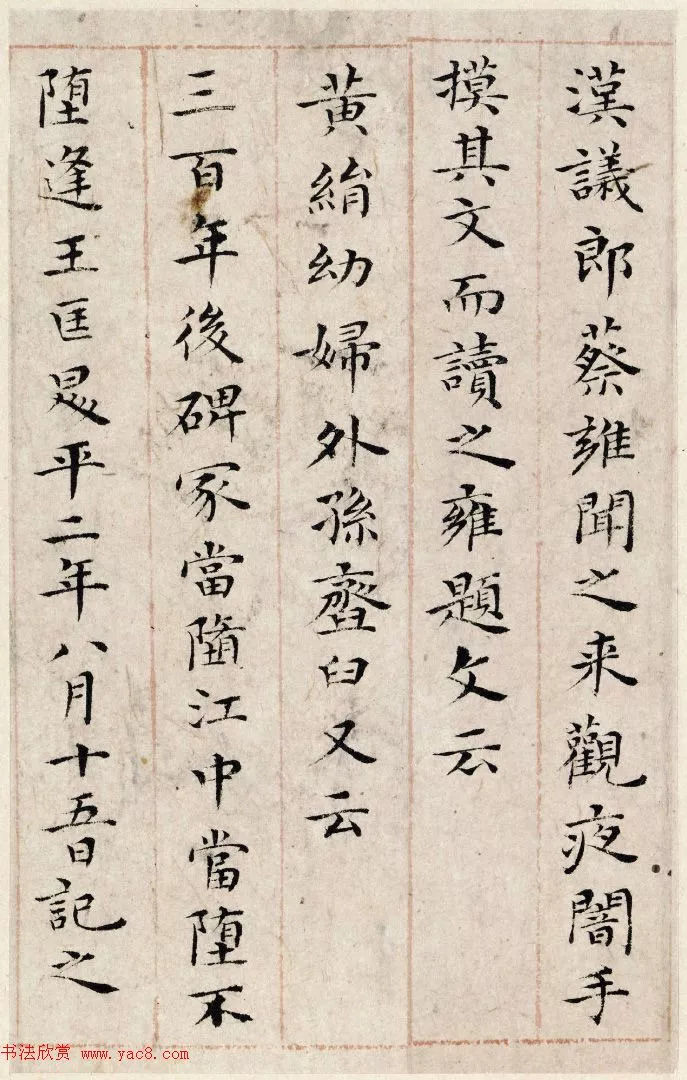 漢議郎蔡雍聞之来觀夜闇手
摸其文而讀之雍題文云
黃絹幼婦外孫齏臼又云
三百年後碑冢當墮江中當墮不
墮逢王匡昱平二年八月十五日記之
书法欣赏 www.yac8.com